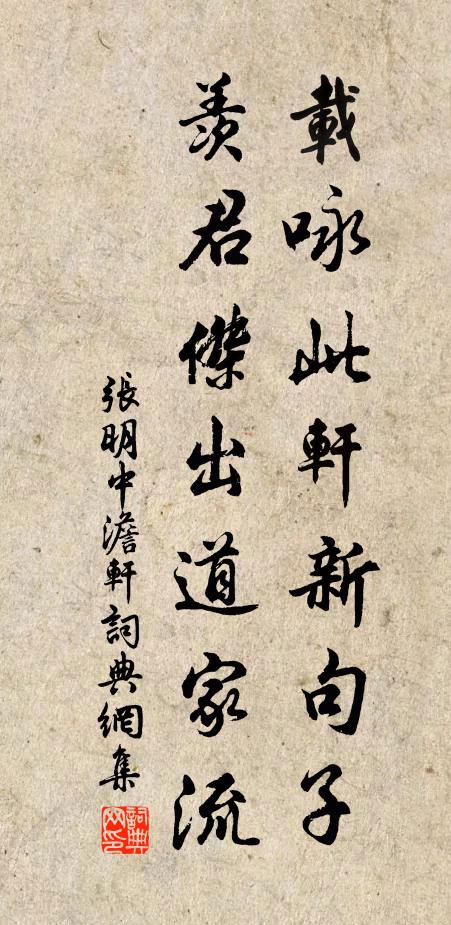 載咏此軒新句子
羨君傑出道家流
張明中澹軒詞典網集
詞典网印